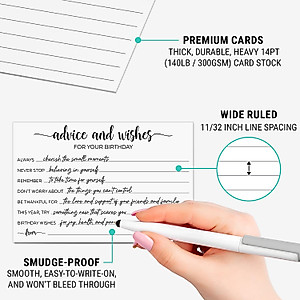 PREMIUM CARDS
THICK, DURABLE, HEAVY 14PT
(140LB / 300GSM) CARD STOCK
WIDE RULED
11/32 INCH LINE SPACING
advice and wishes
FOR YOUR BIRTHDAY
ALWAYS cherish the small moments
NEVER STOP believing in yourself
REMEMBER to take time for yourself
DON'T WORRY ABOUT the things you can't control
BE THANKFUL FOR the love and support of your friends and family
THIS YEAR, TRY something new that scares you
BIRTHDAY WISHES for joy, health, and
from
SMUDGE-PROOF
SMOOTH, EASY-TO-WRITE-ON,
AND WON'T BLEED THROUGH